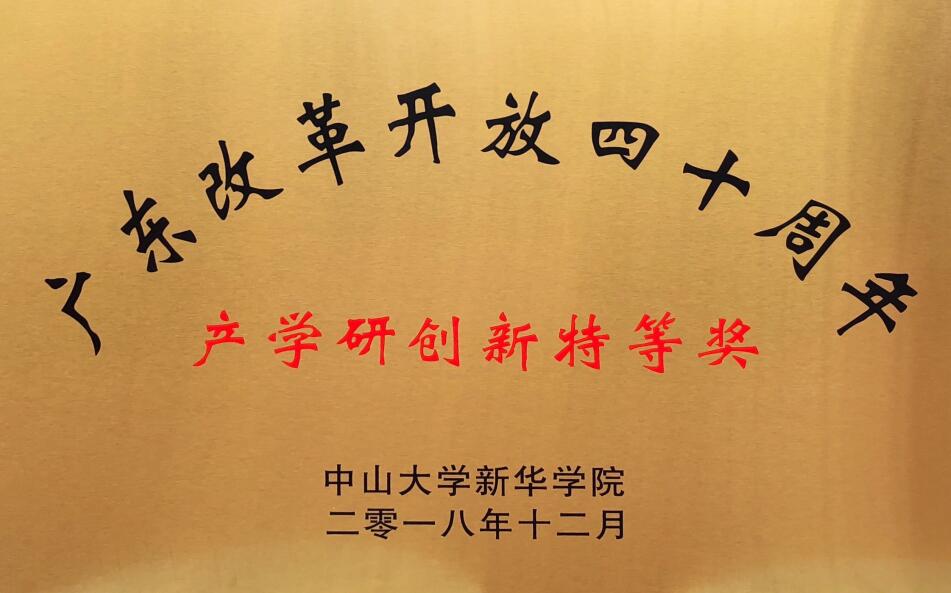 广东改革开放四十周年
产学研创新特等奖
中山大学新华学院
二零一八年十二月